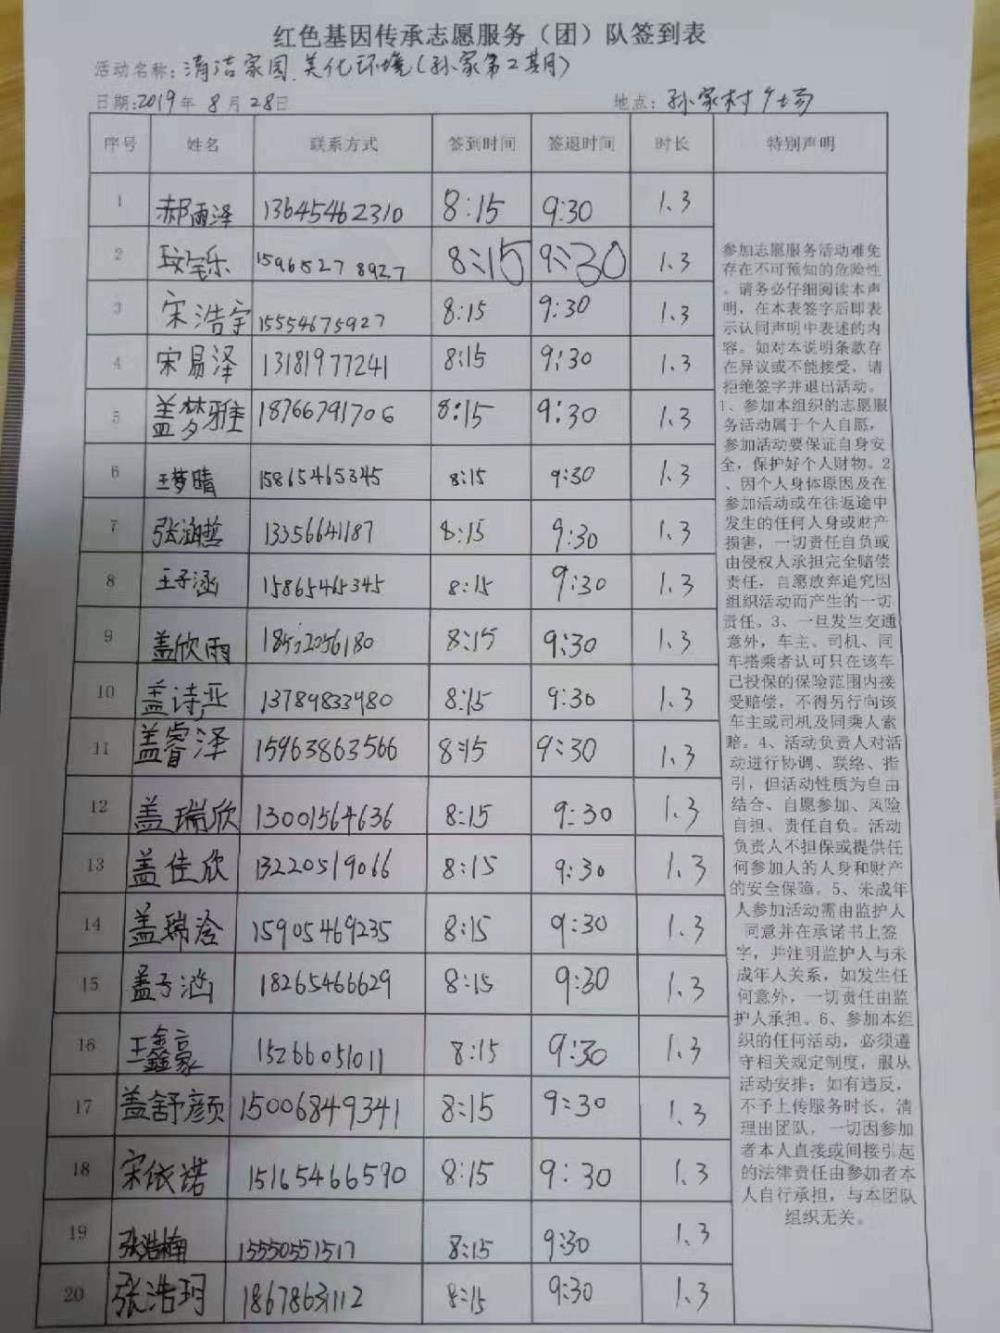 红色基因传承志愿服务（团）队签到表
活动名称：清洁家园、美化环境（孙家第2期）
日期：2019年8月28日 地点：孙家村广场
序号 姓名 联系方式 签到时间 签退时间 时长 特别声明
1 郝雨泽 13645462310 8:15 9:30 1.3
2 宝乐 15965278927 8:15 9:30 1.3
3 宋浩宇 15554675927 8:15 9:30 1.3
4 宋易泽 13181977241 8:15 9:30 1.3
5 盖梦雅 18766791706 8:15 9:30 1.3
6 王梦晴 15865465345 8:15 9:30 1.3
7 张涵哲 13356641187 8:15 9:30 1.3
8 王子涵 15865465345 8:15 9:30 1.3
9 盖欣雨 8:15 9:30 1.3
10 盖诗亚 13789833980 8:15 9:30 1.3
11 盖睿泽 15963863566 8:15 9:30 1.3
12 盖瑞欣 13001564636 8:15 9:30 1.3
13 盖佳欣 13220519066 8:15 9:30 1.3
14 盖瑞涵 15905469235 8:15 9:30 1.3
15 孟子涵 18265466629 8:15 9:30 1.3
16 王鑫豪 15266051011 8:15 9:30 1.3
17 盖舒颜 15006849341 8:15 9:30 1.3
18 宋依诺 15165466590 8:15 9:30 1.3
19 张浩楠 15550551517 8:15 9:30 1.3
20 张浩玥 18678631112 8:15 9:30 1.3
参加志愿服务活动难免
存在不可预知的危险性
。请务必仔细阅读本声
明，在本表签字后即表
示认同声明中表述的内
容。如对本说明条款存
在异议或不能接受，请
拒绝签字并退出活动。
1、参加本组织的志愿服
务活动属于个人自愿，
参加活动要保证自身安
全，保护好个人财物。2
、因个人身体原因及在
参加活动或在往返途中
发生的任何人身或财产
损害，一切责任自负或
由侵权人承担完全赔偿
责任，自愿放弃追究因
组织活动而产生的一切
责任。3、一旦发生交通
意外，车主、司机、同
车搭乘者认可只在该车
已投保的保险范围内接
受赔偿，不得另行向该
车主或司机及同乘人索
赔。4、活动负责人对活
动进行协调、联络、指
引，但活动性质为自由
结合、自愿参加、风险
自担、责任自负。活动
负责人不担保或提供任
何参加人的人身和财产
的安全保障。5、未成年
人参加活动需由监护人
同意并在承诺书上签
字，并注明监护人与未
成年人关系，如发生任
何意外，一切责任由监
护人承担。6、参加本组
织的任何活动，必须遵
守相关规定制度，服从
活动安排；如有违反，
不予上传服务时长，清
理出团队，一切因参加
者本人直接或间接引起
的法律责任由参加者本
人自行承担，与本团队
组织无关。